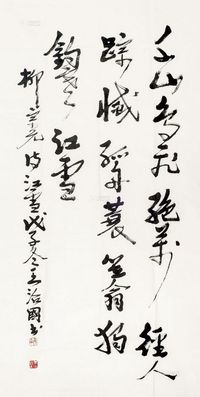 千山鸟飞绝万径人
踪灭孤舟蓑笠翁独
钓寒江雪
柳宗元诗江雪戊子冬王治国书